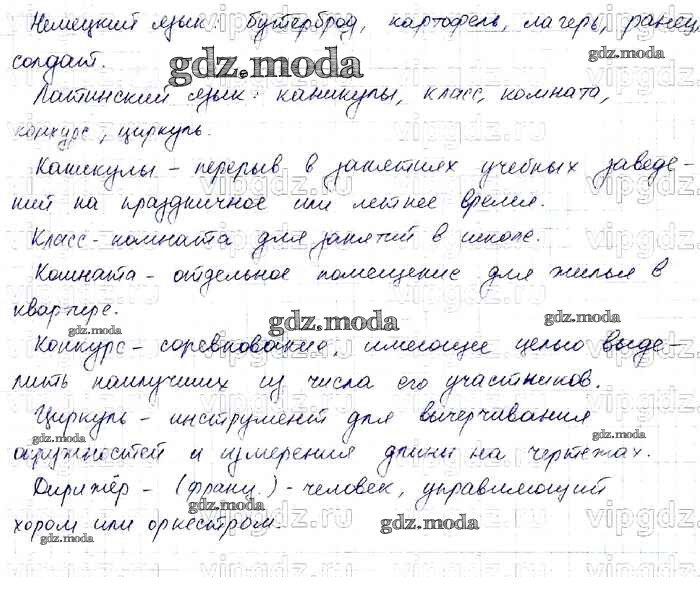 Немецкий язык: Бутерброд, картофель, лагерь, ранец,
солдат.
gdz.moda
Латинский язык: каникулы, класс, комната,
конкурс, циркуль.
Каникулы – перерыв в занятиях учебных заведе-
ний на праздничное или летнее время.
Класс – комната для занятий в школе.
Комната – отдельное помещение для жилья в
квартире.
gdz.moda
gdz.moda
gdz.moda
Конкурс – соревнование, имеющее целью выде-
лить наилучших из числа его участников.
Циркуль – инструмент для вычерчивания
gdz.moda
gdz.moda
окружностей и измерения длины на чертежах.
Дирижёр – (франц.) – человек, управляющий
хором или оркестром.
gdz.moda
gdz.moda
gdz.moda
vipgdz.ru